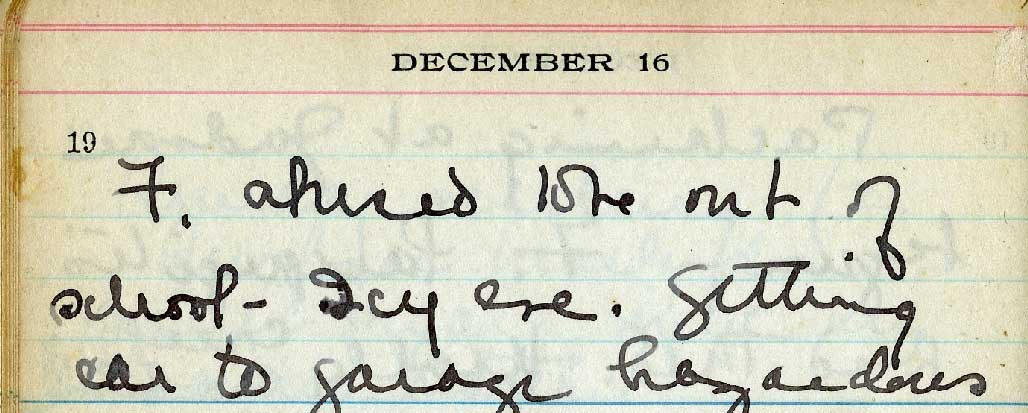 DECEMBER 16
19
F. abused to be out of
school - Icy eve. Getting
car to garage hazardous